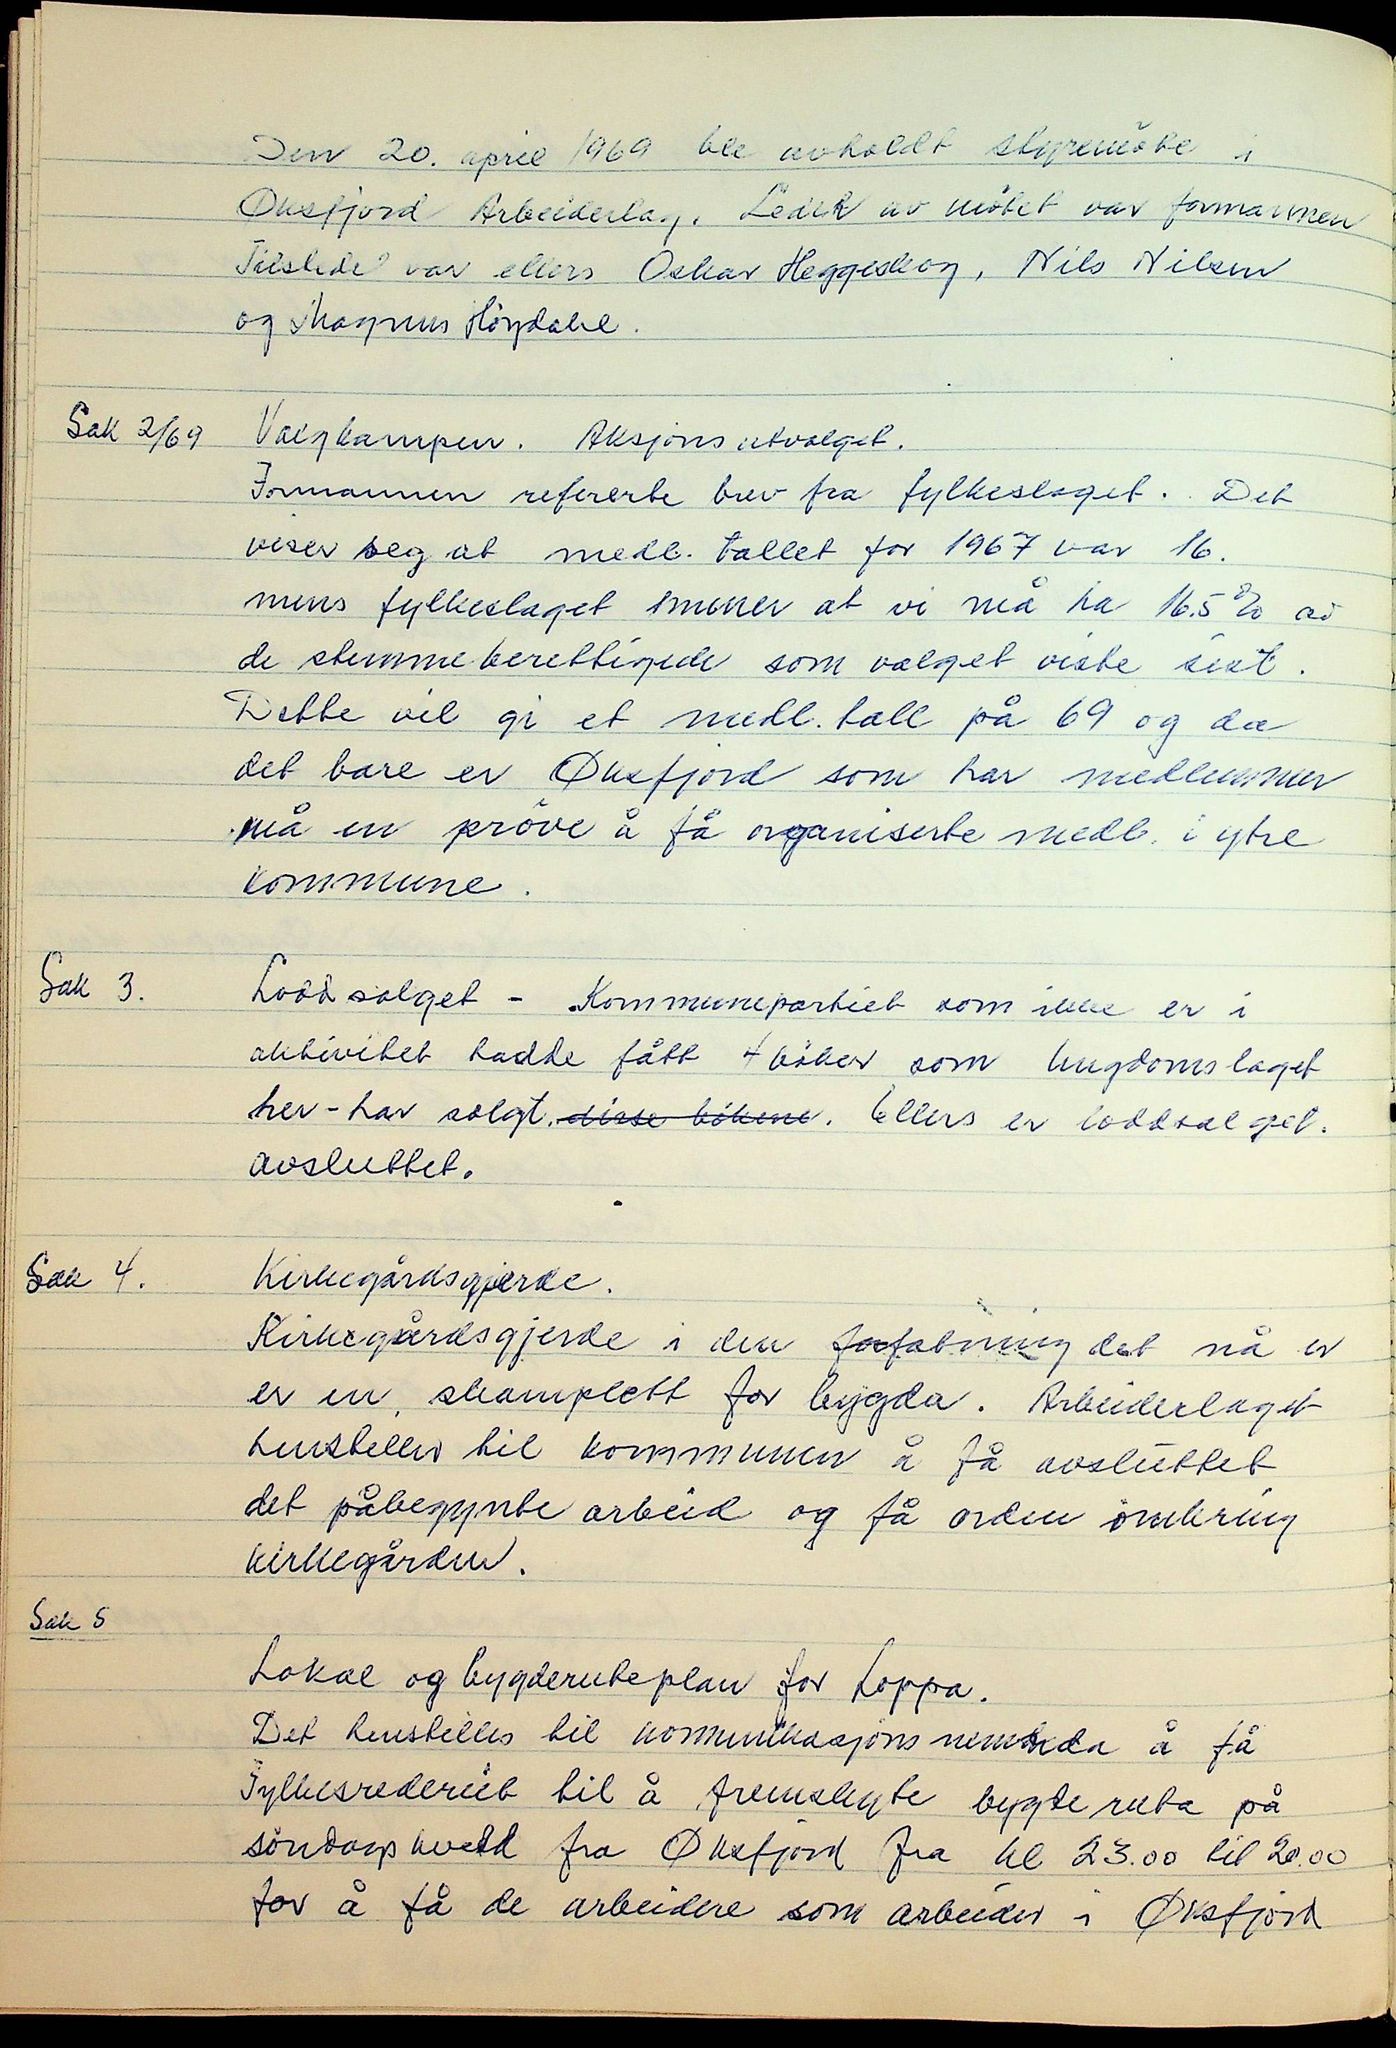 Den 20. april 1969 ble avholdt styremöte i
Øksfjord Arbeiderlag. Leder av mötet var formannen
Tilstede var ellers Oskar Heggeskog, Nils Nilsen
og Magnus Höydahl.
Sak 2/69 Valgkampen. Aksjonsutvalget.
Formannen refererte brev fra fylkeslaget. Det
viser seg at medl. tallet for 1967 var 16.
mens fylkeslaget mener at vi må ha 16.5% av
de stemmeberettigede som valget viste sist.
Dette vil gi et medl. tall på 69 og da
det bare er Øksfjord som har medlemmer
må en pröve å få organiserte medl. i ytre
kommune.
Sak 3. Loddsalget - Kommunepartiet som ikke er i
aktivitet hadde fått 4 böker som Ungdomslaget
her - har solgt. disse bökene. Ellers er loddsalget.
avsluttet.
Sak 4. Kirkegårdsgjerde.
Kirkegårdsgjerde i den forfatning det nå er
er en skamplett for bygda. Arbeiderlaget
henstiller til kommunen å få avsluttet
det påbegynte arbeid og få orden omkring
kirkegården.
Sak 5
Lokal og bygderuteplan for Loppa.
Det henstilles til kommunikasjonsnemnda å få
Fylkesrederiet til å fremskyte bygderuta på
söndagskveld fra Øksfjord fra kl 23.00 til 20.00
for å få de arbeidere som arbeider i Øksfjord